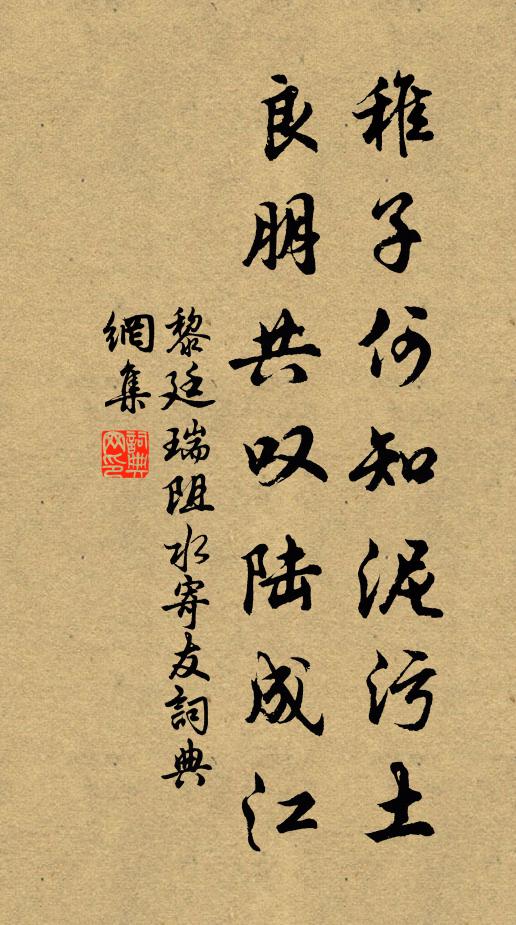 稚子何知泥污土
良朋共叹陆成江
黎廷瑞阻水寄友詞典
網集
詞典
网印